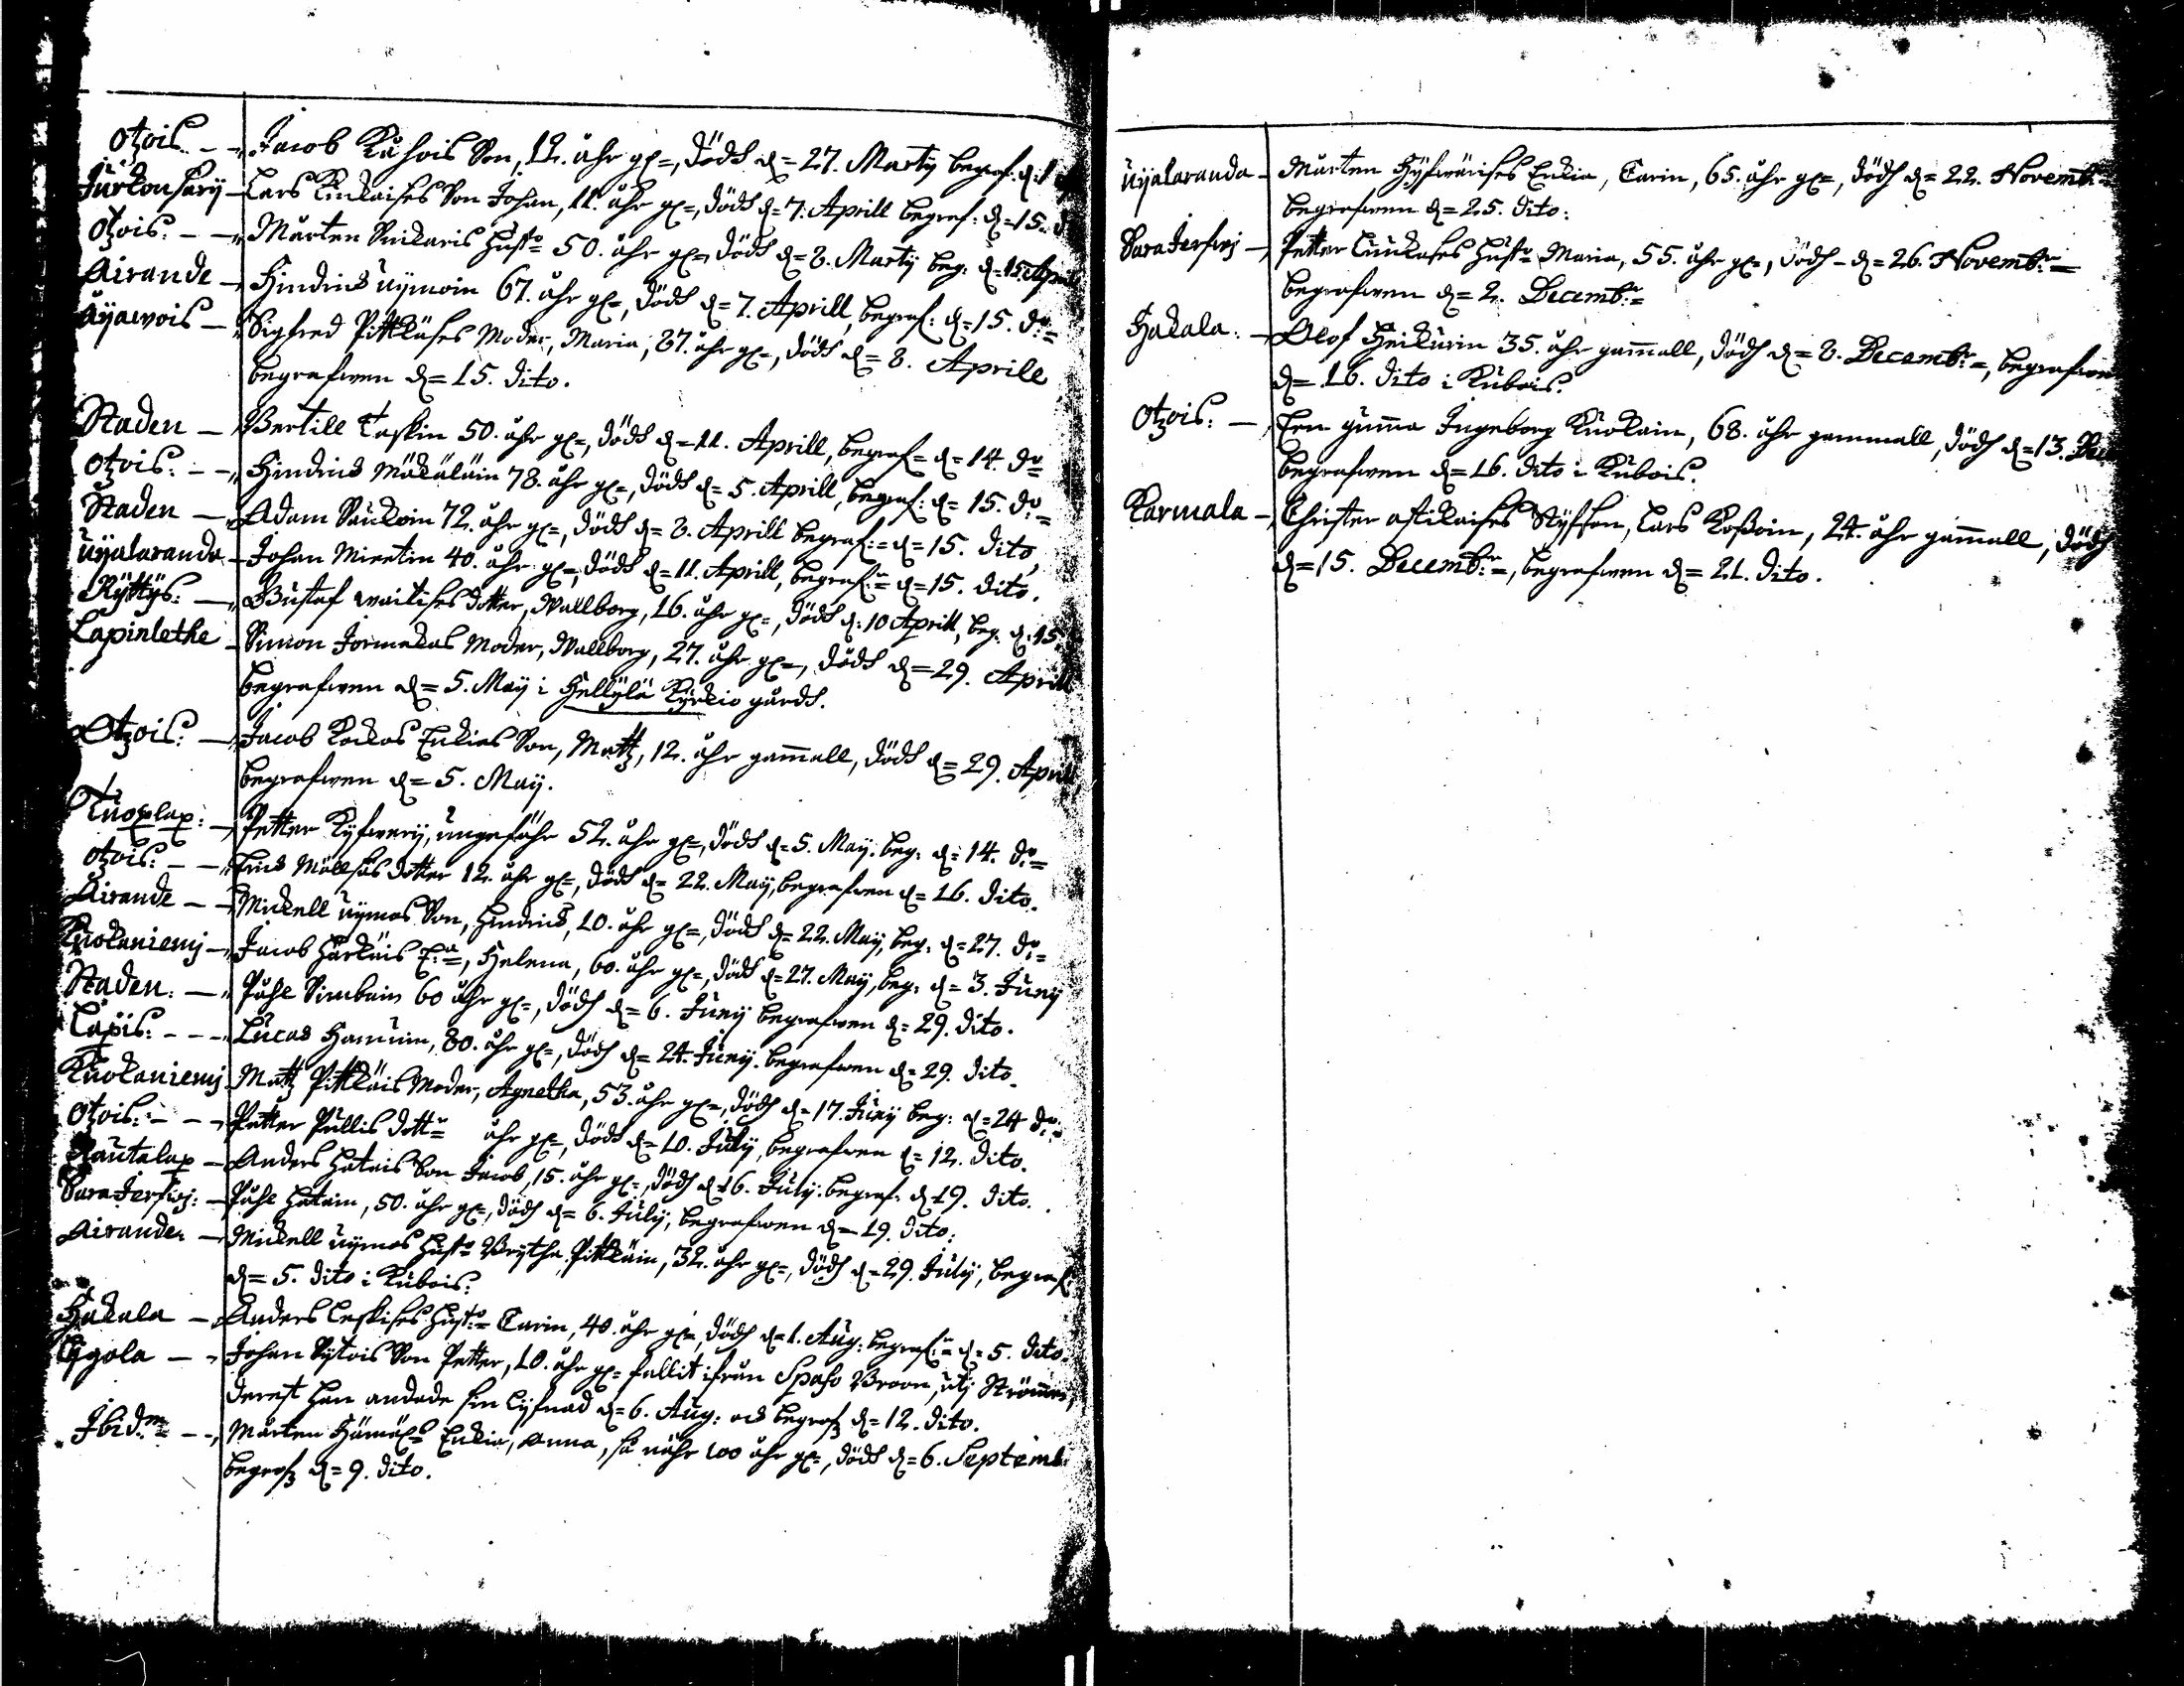 Otzois. — Jacob Kuhois Son, 12. åhr gl=, Död d= 27. Martÿ begraf: d:
Jurkonsarÿ — Lars Kinkaises Son Johan, 11. åhr gl=, Död d= 7. Aprill begraf: d= 15.
Otzois: — Mårten hust= 50. åhr gl= Död d= 8. Martÿ beg: d= 15. April
Airande — Hindrich Uÿmoin 67. åhr gl=, Död d= 7. Aprill, begraf: d= 15. do=
Uÿawois — Sigfred Pittkäses Moder, Maria, 87. åhr gl=, Död d= 8. Aprill
begrafwen d= 15. dito.
Staden — Bertill Taskin 50. åhr gl=, Död d= 11. Aprill, begraf= d= 14. do=
Otzois: — Hindrich Mäkäläin 78. åhr gl=, Död d= 5. Aprill, begraf: d= 15. do=
Staden — Adam Saukoin 72. åhr gl=, Död d= 8. Aprill begraf:= d= 15. dito,
Uÿalaranda — Johan Mientin 40. åhr gl=, Död d= 11. Aprill, begraf:= d= 15. dito.
Rÿttÿs: — Gustaf waitises dotter, Wallborg, 16. åhr gl=, Död d: 10 Aprill, beg. d: 15
Lapinlethe — Simon Jormakas Moder, Wallborg, 27. åhr gl=, Död d= 29. Aprill
begrafwen d= 5. Maÿ i Hellÿlä Kÿrkio gård.
Otzois: — Jacob Kockos Enkias Son, Mattz, 12. åhr gamall, Död d= 29. Aprill
begrafwen d= 5. Maÿ.
Kuoxlax: — Petter Kÿfwerÿ, ungefähr 52. åhr gl=, Död d= 5. Maÿ. beg: d= 14. do=
Otzois: — Erich Mällsäs dotter 12. åhr gl=, Död d= 22. Maÿ, begrafwen d= 16. dito.
Airande — Mickell Uÿmos Son, Hindrich, 10. åhr gl=, Död d= 22. Maÿ, beg: d= 27. do=
Kuokaniemj — Jacob Härkäis E:a=, Helena, 60. åhr gl=, Död d= 27. Maÿ, beg: d= 3. Junÿ
Staden: — Påhl Simbain 60 åhr gl=, Död d= 6. Junÿ begrafwen d= 29. dito.
Lapis: — Lucas Hamuin, 80. åhr gl=, Död d= 24. Junÿ. begrafwen d= 29. dito.
Kuokaniemj Mattz Pittkäis Moder, Agnetha, 53. åhr gl=, Död d= 17. Junÿ beg: d= 24 do:
Otzois: — Petter Pullis dott= åhr gl=, Död d= 10. Julÿ, begrafwen d= 12. dito.
Rautalax — Anders Hatais Son Jacob, 15. åhr gl=, Död d 16. Julÿ. begraf: d 19. dito.
SaraJerfwj: — Påhl Hatain, 50. åhr gl=, Död d= 6. Julÿ, begrafwen d= 19. dito:
Airande — Mickell Uÿmos hust= Brÿtha Pittkäin, 32. åhr gl=, Död d= 29. Julÿ, begraf:
d= 5. dito i Kubois:
Hakala — Anders Leskises hust:= Carin, 40. åhr gl=, Död d= 1. Aug: begraf:= d= 5. dito.
Johan Sÿtois Son Petter, 10. åhr gl= fallit ifrån Spaso Broon, utj Strömen,
derest han andade sin Lÿfnad d= 6. Aug: och begrafz d= 12. dito.
Ibid:m= — Mårten Enkia, Anna, så nähr 100 åhr gl=, Död d= 6. Septemb:
begrafz d= 9. dito.
Uÿalaranda — Mårten Hÿfwärises Enkia, Carin, 65. åhr gl=, Död d= 22. Novemb:=
begrafwen d= 25. dito:
SaraJerfwj — Petter Luukases hust= Maria, 55. åhr gl=, Död d= 26. Novemb:r=
begrafwen d= 2. Decemb:=
Hakala: — Olof Heikurin 35. åhr gamall, Död d= 8. Decemb:r=, begrafwen
d= 16. dito i Kubois:
Otzois: — Een gumma Ingeborg Kuokain, 68. åhr gammall, Död d= 13. Dec
begrafwen d= 16. dito i Kubois:
Karmala — Christer astikaises Stÿfson, Lars Kossoin, 24. åhr gamall, Död
d= 15. Decemb:r=, begrafwen d= 21. dito.